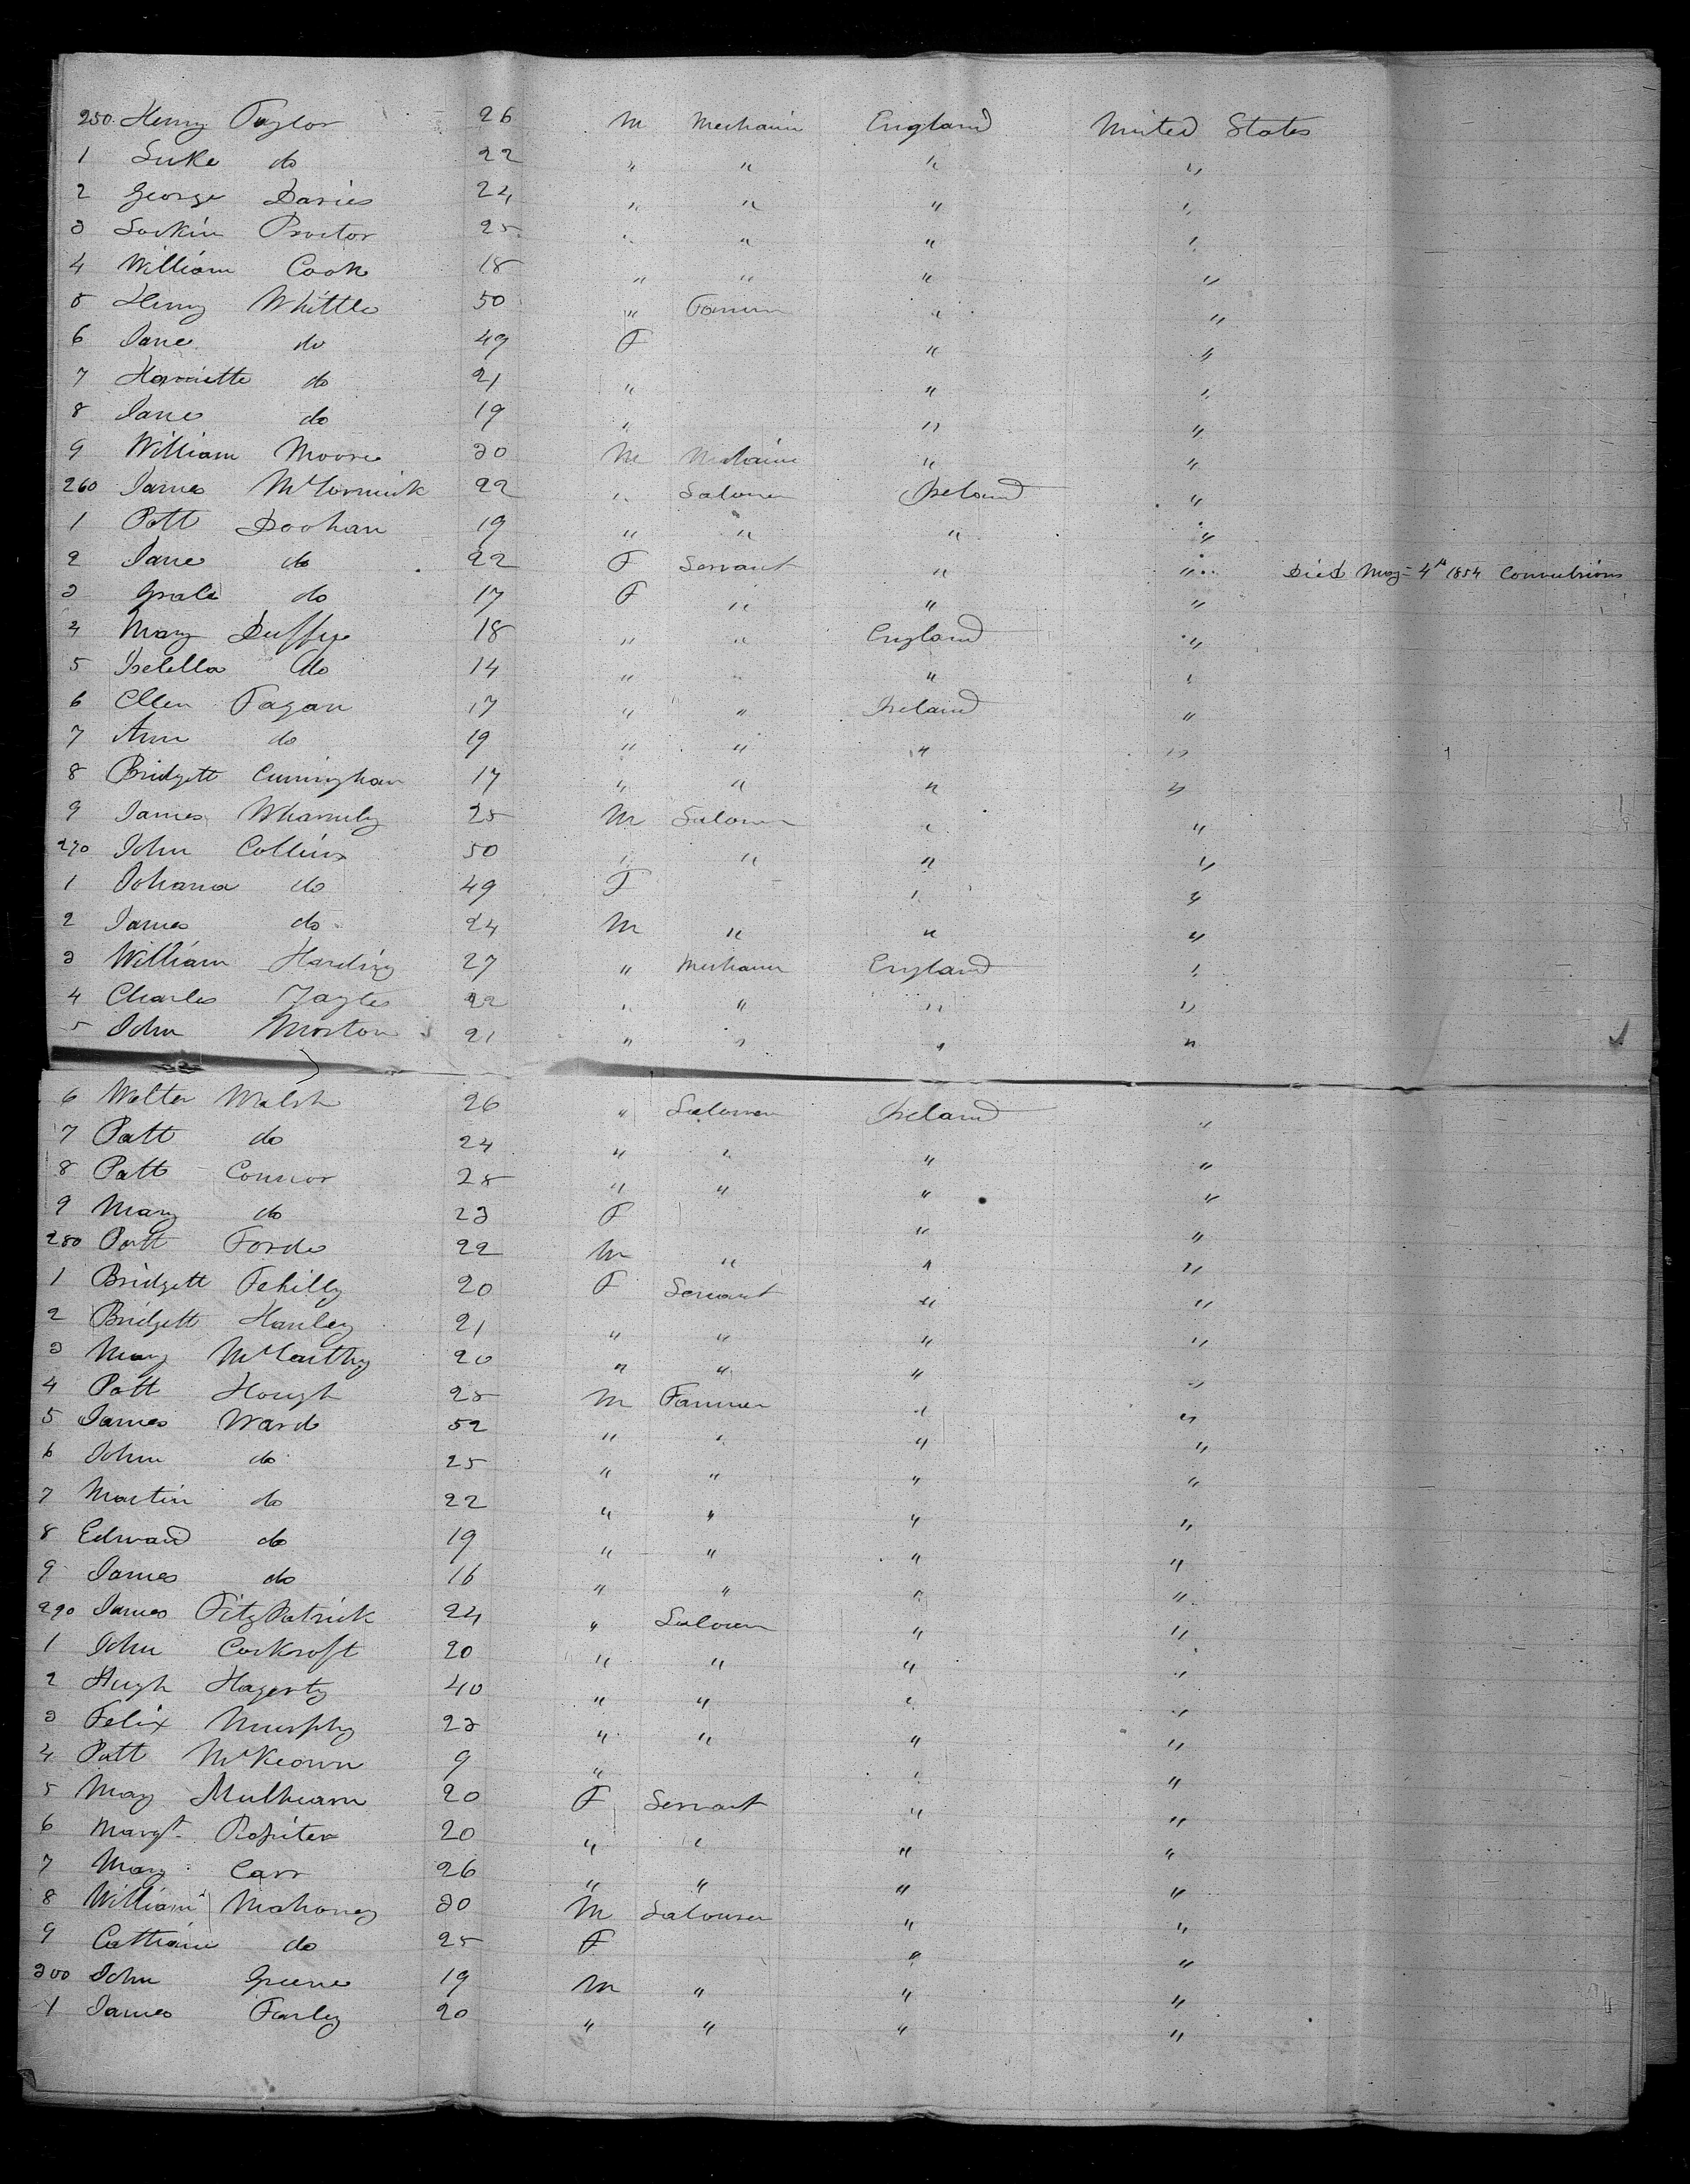 250 Henry Taylor 26 M Mechanic England United States
1 Luke do 22 " " " "
2 George Davies 24 " " " "
3 Proctor 25 " " " "
4 William Cook 18 " " " "
5 Henry Whittle 50 " Farmer " "
6 Jane do 49 F " "
7 Harriette do 21 " " "
8 Jane do 19 " " "
9 William Moore 30 M Mechanic " "
260 James McCormick 22 " Labourer Ireland "
1 Patt Doohan 19 " " " "
2 Jane do 22 F Servant " " Died May 4th 1854 Convulsions
3 do 17 F " " "
4 Mary Duffye 18 " " England "
5 Isebella do 14 " " " "
6 Ellen Fagan 17 " " Ireland "
7 Ann do 19 " " " "
8 Bridgett Cuningham 17 " " " "
9 James Wharmby 25 M Labourer " "
270 John Collins 50 " " " "
1 Johana do 49 F " "
2 James do 24 M " " "
3 William Harding 27 " Mechanic England "
4 Charles 22 " " " "
5 John Morton 21 " " " "
6 Walter Walsh 26 " Labourer Ireland "
7 Patt do 24 " " " "
8 Patt Connor 28 " " " "
9 Mary do 23 F " "
280 Patt Forde 22 M " " "
1 Bridgett Fehilly 20 F Servant " "
2 Bridgett Hanley 21 " " " "
3 Mary McCarthy 20 " " " "
4 Patt Hough 25 M Farmer " "
5 James Ward 52 " " " "
6 John do 25 " " " "
7 Martin do 22 " " " "
8 Edward do 19 " " " "
9 James do 16 " " " "
290 James FitzPatrick 24 " Labourer " "
1 John Corkroft 20 " " " "
2 Hugh Hagerty 40 " " " "
3 Felix Murphy 23 " " " "
4 Patt McKeown 9 " " "
5 May Mulhearn 20 F Servant " "
6 Margt 20 " " " "
7 Mary Carr 26 " " " "
8 William Mahoney 30 M Labourer " "
9 Cathrine do 25 F " "
300 John Greene 19 M " " "
1 James Farley 20 " " " "